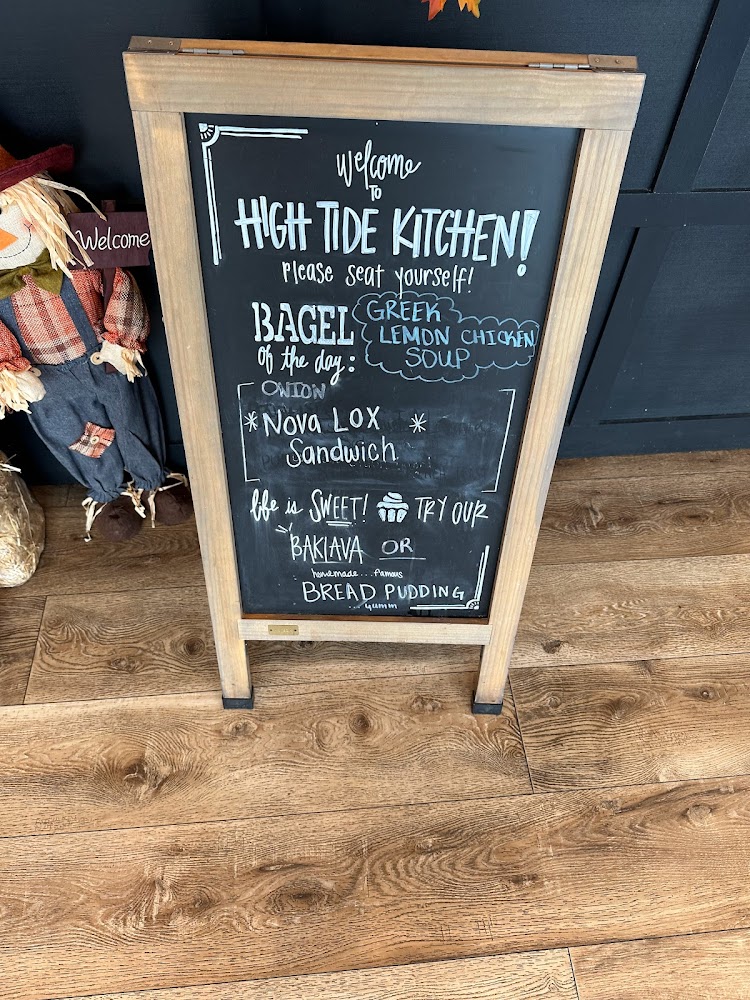 Welcome
welcome
TO
HIGH TIDE KITCHEN!
Please seat yourself!
BAGEL
of the day:
GREEK
LEMON CHICKEN
SOUP
ONION
* NOVA LOX *
Sandwich
life is SWEET! TRY OUR
BAKLAVA OR
homemade... Famous
BREAD PUDDING
...yumm